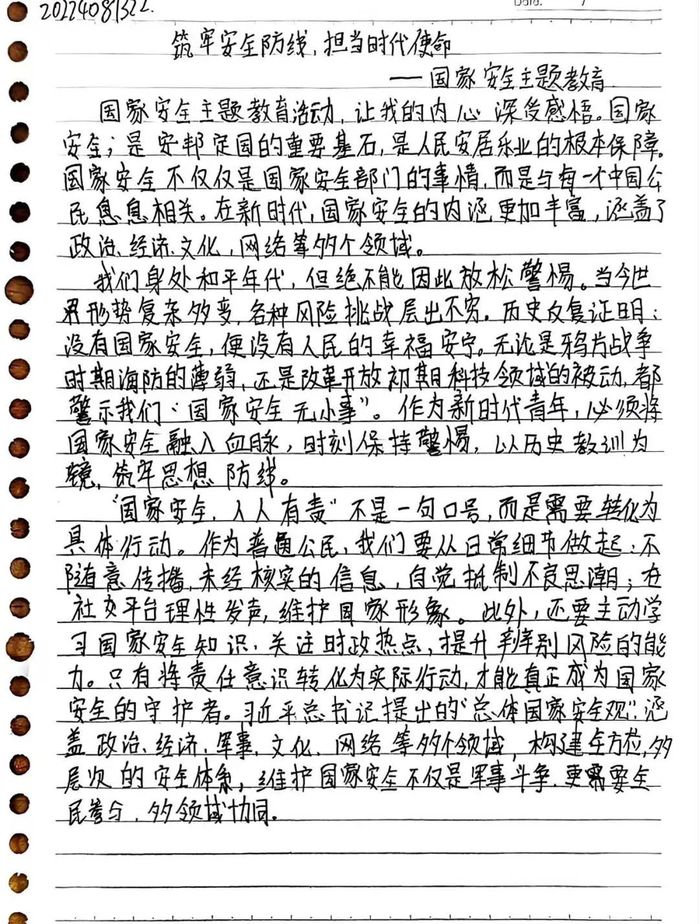 20224081322
Date. /
筑牢安全防线,担当时代使命
——国家安全主题教育
国家安全主题教育活动,让我的内心深受感悟。国家
安全;是安邦定国的重要基石,是人民安居乐业的根本保障。
国家安全不仅仅是国家安全部门的事情,而是与每一个中国公
民息息相关。在新时代,国家安全的内涵更加丰富,涵盖了
政治、经济、文化,网络等多个领域。
我们身处和平年代,但绝不能因此放松警惕。当今世
界形势复杂多变,各种风险挑战层出不穷。历史反复证明:
没有国家安全,便没有人民的幸福安宁。无论是鸦片战争
时期海防的薄弱,还是改革开放初期科技领域的被动,都
警示我们:“国家安全无小事”。作为新时代青年,必须将
国家安全融入血脉,时刻保持警惕,以历史教训为
镜,筑牢思想防线。
“国家安全,人人有责”不是一句口号,而是需要转化为
具体行动。作为普通公民,我们要从日常细节做起:不
随意传播,未经核实的信息,自觉抵制不良思潮;在
社交平台理性发声,维护国家形象。此外,还要主动学
习国家安全知识,关注时政热点,提升辨别风险的能
力。只有将责任意识转化为实际行动,才能真正成为国家
安全的守护者。习近平总书记提出的“总体国家安全观”,涵
盖政治、经济,军事,文化、网络等多个领域,构建全方位,多
层次的安全体系,维护国家安全不仅是军事斗争,更需要全
民参与,多领域协同。